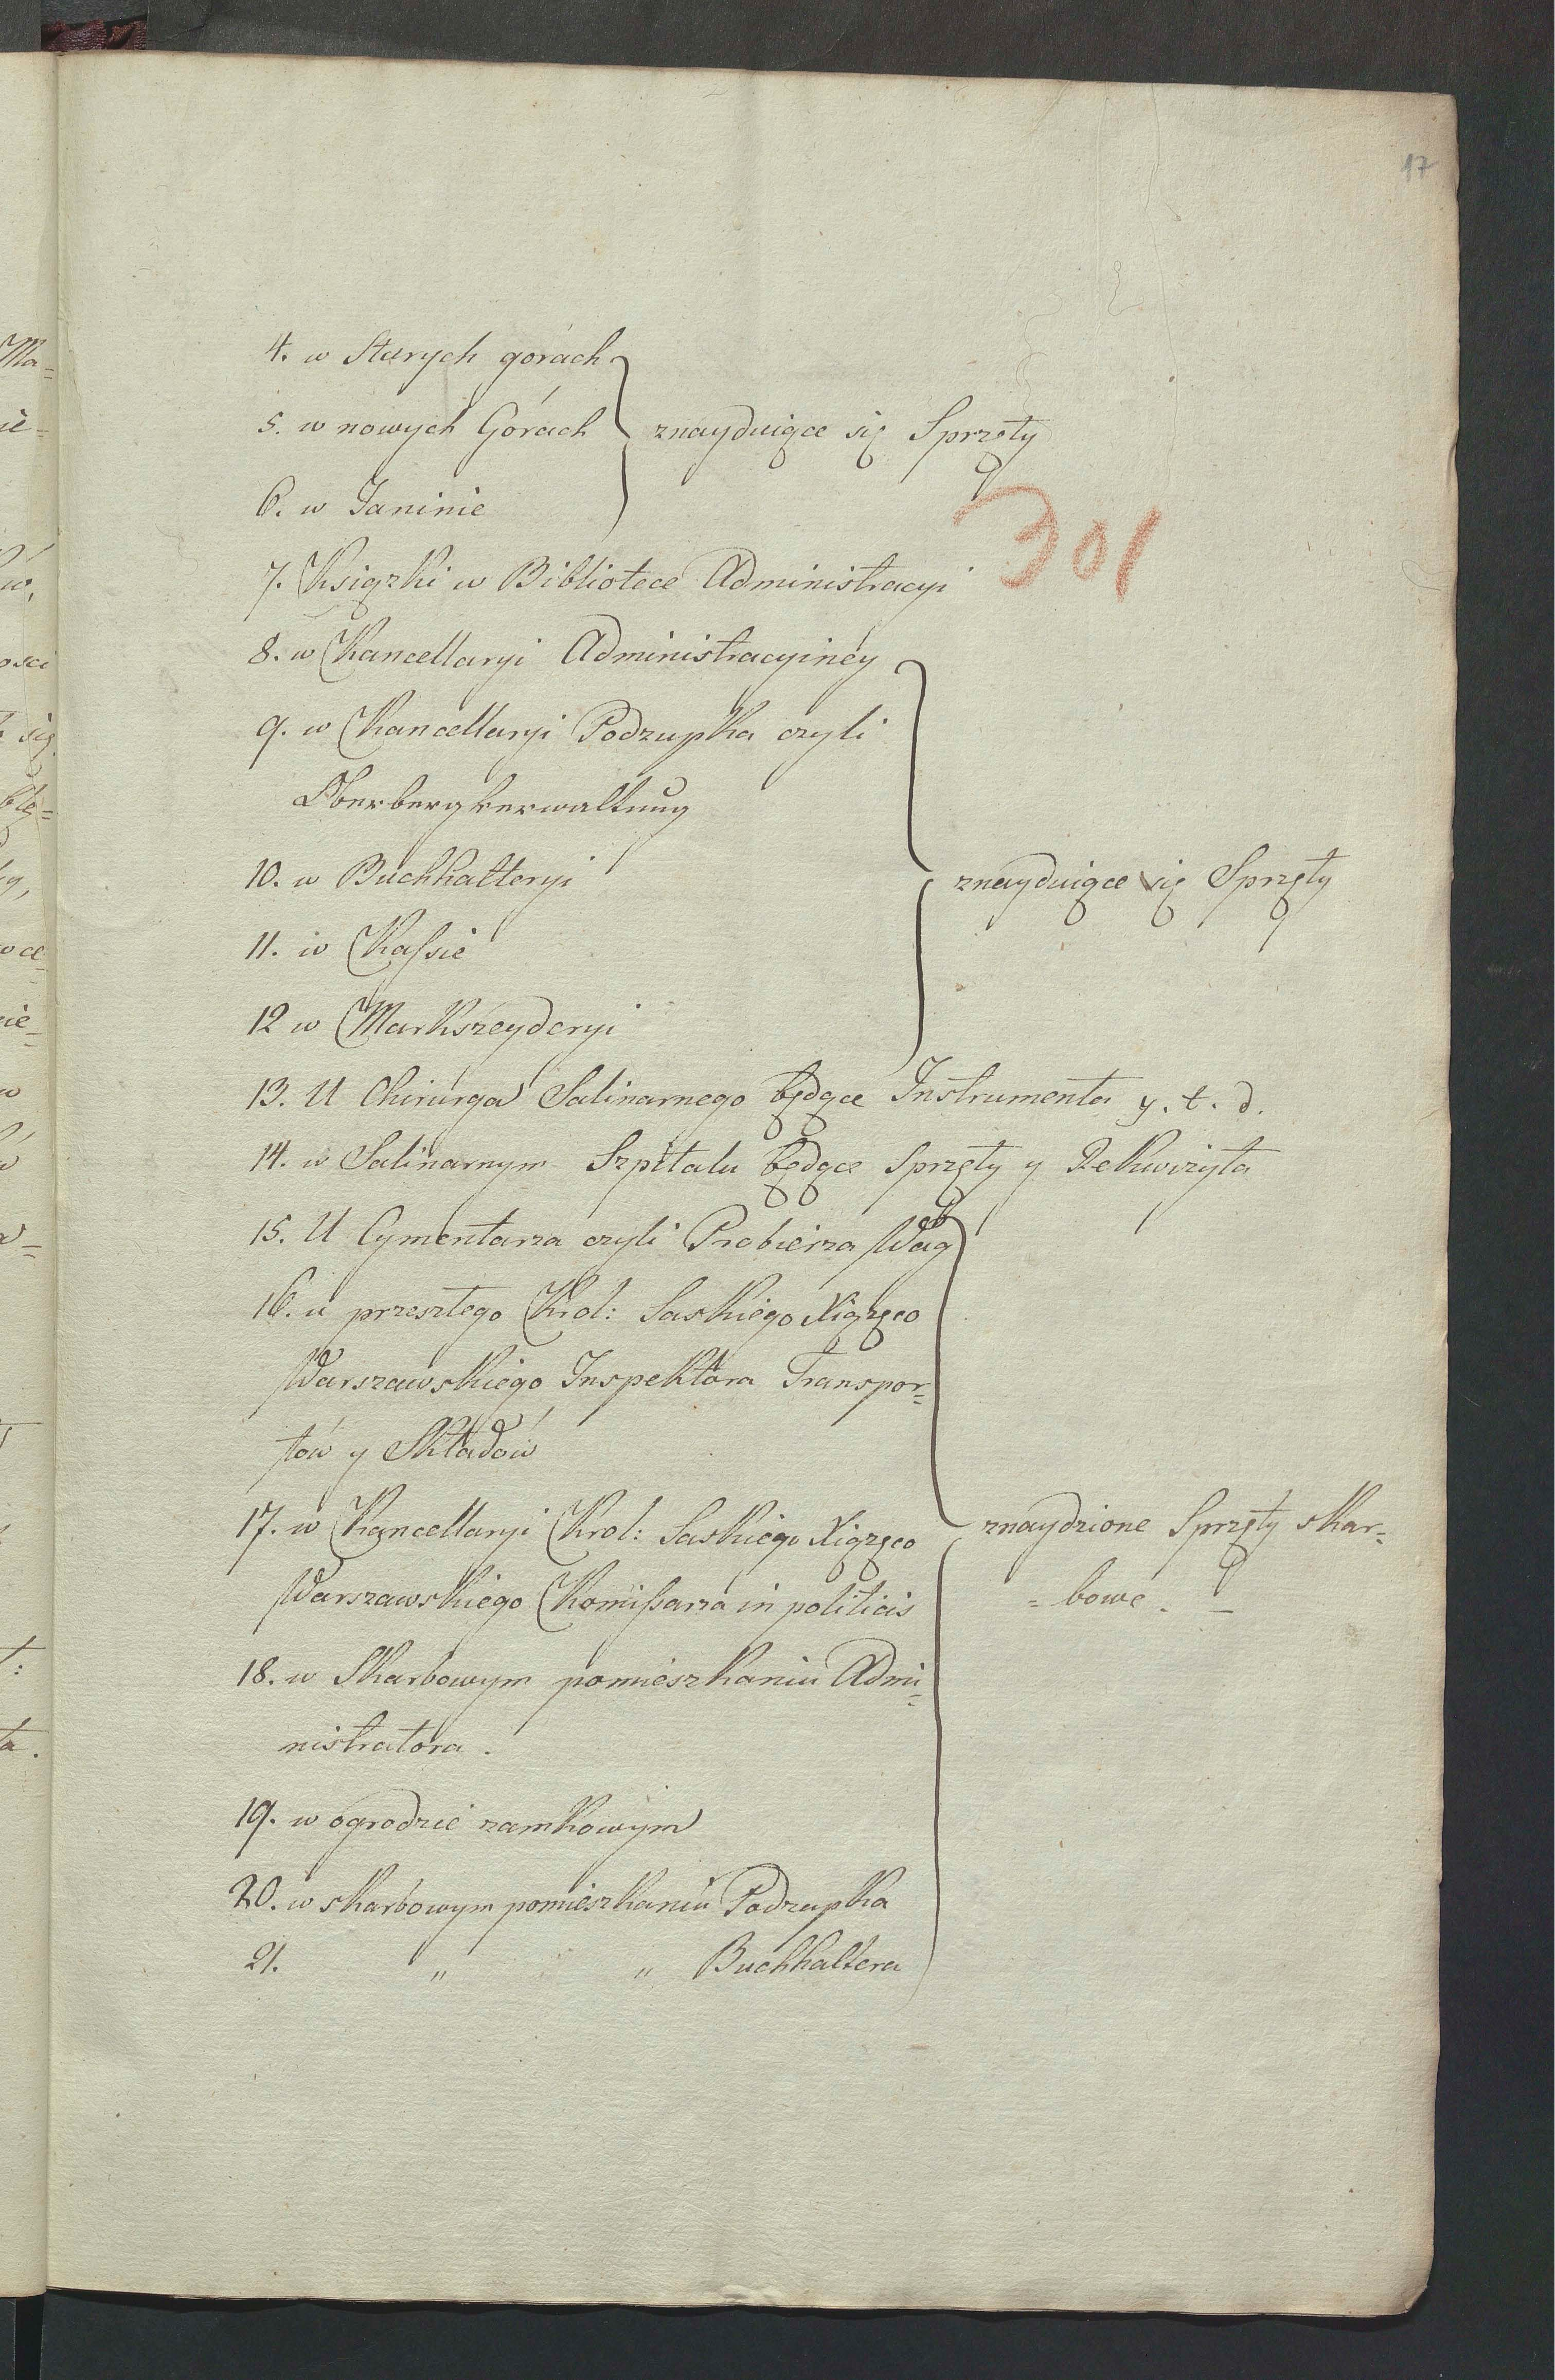 17
4. w Starych górach
5. w nowych Górach znayduiące się Sprzęty
6. w Janinie
301
7. Ksiązki w Bibliotece Administracyi
8. w Kancellaryi Administracyiney
9. w Kancellaryi Podzupka czyli
Oberbergverwaltung
10. w Buchhalteryi znayduiące się Sprzęty
11. w Kassie
12 w Markszeyderyi
13. U Chirurga Salinarnego będące Instrumenta y. t. d.
14. w Salinarnym Szpitalu będące sprzęty y Rekwizyta
15. U Cymentarza czyli Probierza Wag
16. u przeszłego Krol: Saskiego Xiązęco
Warszawskiego Inspektora Transpor=
tów y Składów
17. w Kancellaryi Krol: Saskiego Xiązęco znaydzione Sprzęty skar=
Warszawskiego Komissarza in politicis =bowe. –
18. w Skarbowym pomieszkaniu Admi=
nistratora.
19. w ogrodzie zamkowym
20. w skarbowym pomieszkaniu Podzupka
21. " " Buchhaltera